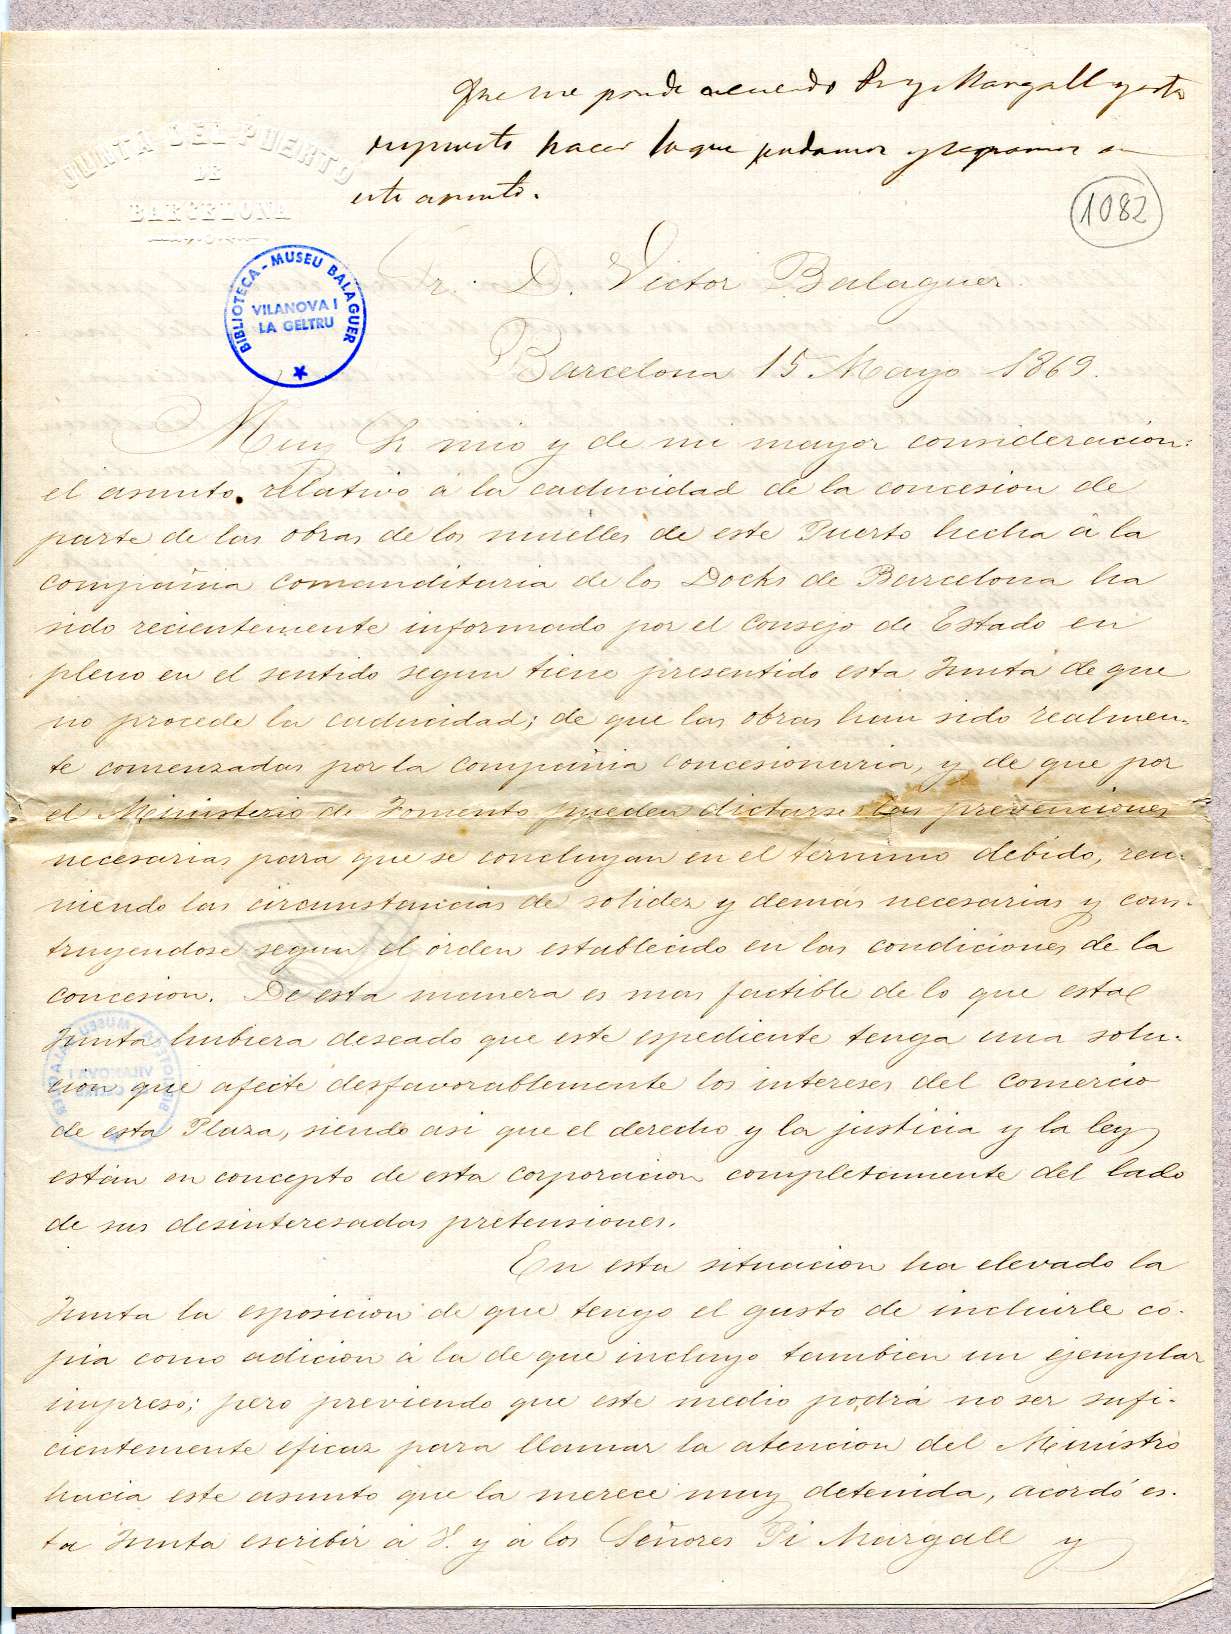 Que me pondré acuerdo Pi y Margall y estoy
dispuesto hacer lo que podamos y sepamos en
este asunto.
JUNTA DEL PUERTO
DE
BARCELONA
1082
BIBLIOTECA-MUSEU BALAGUER
VILANOVA I
LA GELTRU
Sr. D. Victor Balaguer.
Barcelona 15 Mayo 1869.
Muy Sr mio y de mi mayor consideracion:
el asunto relativo á la caducidad de la concesion de
parte de las obras de los muelles de este Puerto hecha á la
compañia comanditaria de los Docks de Barcelona ha
sido recientemente informado por el Consejo de Estado en
pleno en el sentido segun tiene presentido esta Junta de que
no procede la caducidad; de que las obras han sido realmen-
te comenzadas por la compañia concesionaria, y de que por
el Ministerio de Fomento pueden dictarse las prevenciones
necesarias para que se concluyan en el término debido, reu-
niendo las circunstancias de solidez y demás necesarias y cons-
truyendose segun el órden establecido en las condiciones de la
concesion. De esta manera es mas factible de lo que esta
Junta hubiera deseado que este espediente tenga una solu-
cion que afecte desfavorablemente los intereses del comercio
de esta Plaza, siendo asi que el derecho y la justicia y la ley
están en concepto de esta corporacion completamente del lado
de sus desinteresadas pretensiones.
En esta situacion ha elevado la
Junta la esposicion de que tengo el gusto de incluirle co-
pia como adicion á la de que incluyo tambien un ejemplar
impreso; pero previendo que este medio podrá no ser sufi-
cientemente eficaz para llamar la atencion del Ministro
hacia este asunto que la merece muy detenida, acordó es-
ta Junta escribir á V. y á los Señores Pi Margall y